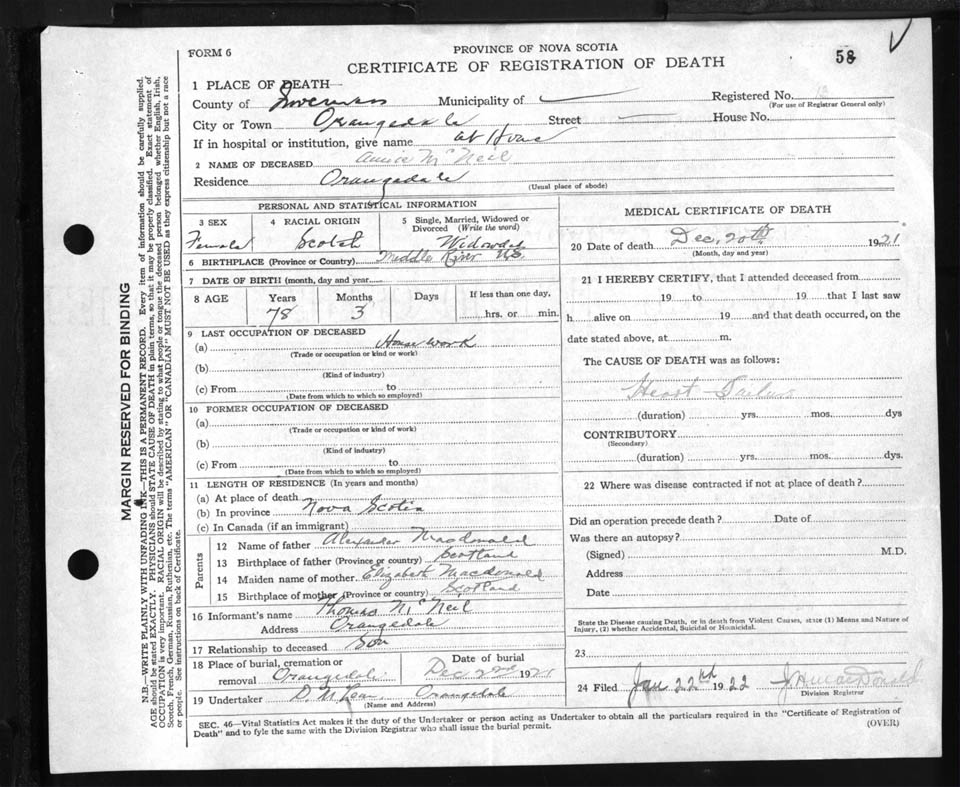 FORM 6
PROVINCE OF NOVA SCOTIA
CERTIFICATE OF REGISTRATION OF DEATH
58
1 PLACE OF DEATH—
County of Inverness Municipality of — Registered No.
(For use of Registrar General only)
City or Town Orangedale Street — House No.
If in hospital or institution, give name at Home
2 NAME OF DECEASED Annie McNeil
Residence Orangedale
(Usual place of abode)
PERSONAL AND STATISTICAL INFORMATION
3 SEX 4 RACIAL ORIGIN 5 Single, Married, Widowed or Divorced (Write the word)
Female Scotch Widowed
6 BIRTHPLACE (Province or Country) Middle River N.S.
7 DATE OF BIRTH (month, day and year)
8 AGE Years Months Days If less than one day,
78 3 hrs. or min.
9 LAST OCCUPATION OF DECEASED
(a) House work
(Trade or occupation or kind or work)
(b)
(Kind of industry)
(c) From to
(Date from which to which so employed)
10 FORMER OCCUPATION OF DECEASED
(a)
(Trade or occupation or kind of work)
(b)
(Kind of industry)
(c) From to
(Date from which to which so employed)
11 LENGTH OF RESIDENCE (In years and months)
(a) At place of death
(b) In province Nova Scotia
(c) In Canada (if an immigrant)
Parents
12 Name of father Alexander Macdonald
13 Birthplace of father (Province or country) Scotland
14 Maiden name of mother Elizabeth Macdonald
15 Birthplace of mother (Province or country) Scotland
16 Informant's name Thomas McNeil
Address Orangedale
17 Relationship to deceased Son
18 Place of burial, cremation or removal Orangedale Date of burial Dec 22nd 1921
19 Undertaker D. McLean Orangedale
(Name and Address)
MEDICAL CERTIFICATE OF DEATH
20 Date of death Dec, 20th 1921
(Month, day and year)
21 I HEREBY CERTIFY, that I attended deceased from
19 to 19 that I last saw
h alive on 19 and that death occurred, on the
date stated above, at m.
The CAUSE OF DEATH was as follows:
Heart Failure
(duration) yrs. mos. dys
CONTRIBUTORY
(Secondary)
(duration) yrs. mos. dys.
22 Where was disease contracted if not at place of death?
Did an operation precede death? Date of
Was there an autopsy?
(Signed) M.D.
Address
Date
State the Disease causing Death, or in death from Violent Causes, state (1) Means and Nature of
Injury, (2) whether Accidental, Suicidal or Homicidal.
23
24 Filed Jan 22nd 1922 J. H. MacDonald
Division Registrar
SEC. 46—Vital Statistics Act makes it the duty of the Undertaker or person acting as Undertaker to obtain all the particulars required in the "Certificate of Registration of
Death" and to fyle the same with the Division Registrar who shall issue the burial permit.
(OVER)
MARGIN RESERVED FOR BINDING
N.B.—WRITE PLAINLY WITH UNFADING INK—THIS IS A PERMANENT RECORD. Every item of information should be carefully supplied.
AGE should be stated EXACTLY. PHYSICIANS should STATE CAUSE OF DEATH in plain terms, so that it may be properly classified. Exact statement of
OCCUPATION is very important. RACIAL ORIGIN will be described by stating to what people or tongue the deceased person belonged whether English, Irish,
Scotch, French, German, Russian, Ruthenian, etc. The terms "AMERICAN" OR "CANADIAN" MUST NOT BE USED as they express citizenship but not a race
or people. See instructions on back of Certificate.